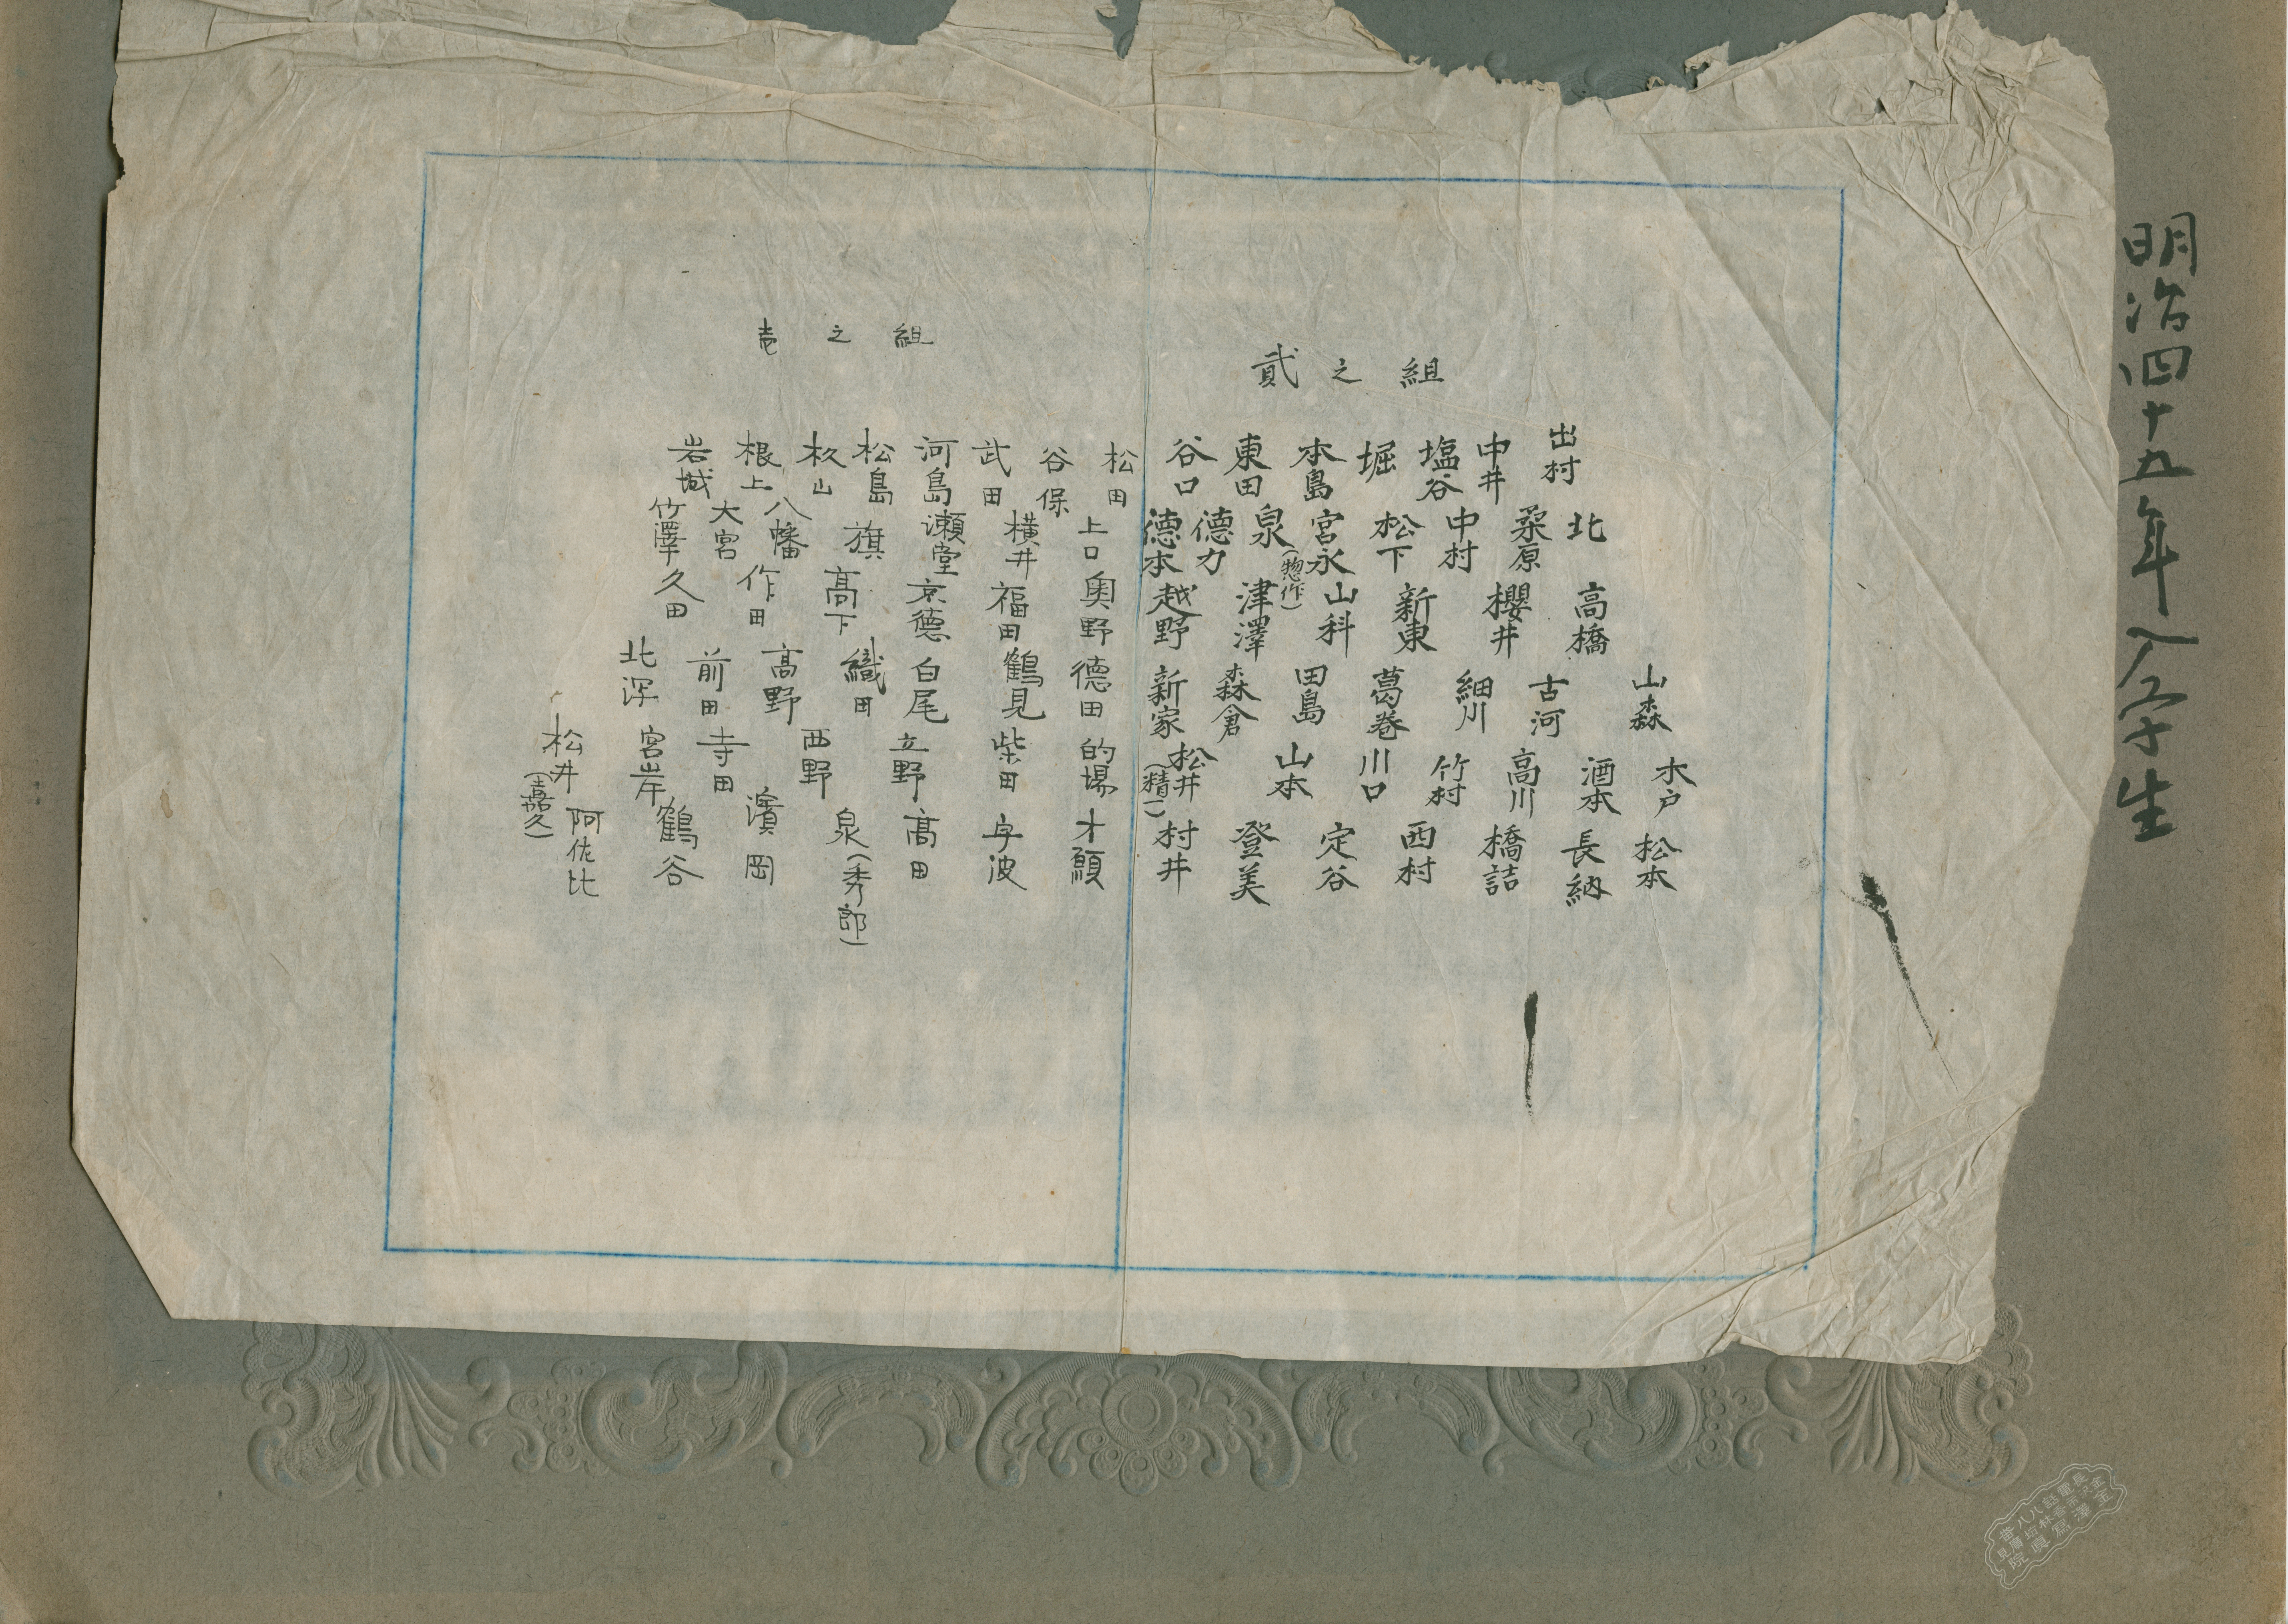 明治四十五年入学生
貳之組
出村 北 高橋 山森 木戸 松本
中井 桑原 櫻井 古河 酒本 長納
塩谷 中村 新東 細川 高川 橋詰
堀 松下 山科 葛巻 竹村 西村
本島 宮永 津澤 田島 川口 定谷
東田 泉(惣作) 越野 森倉 山本 登美
谷口 德力 德本 新家 松井(精一) 村井
壱之組
松田 上口 奥野 德田 的場 才
谷保 横井 福田 鶴見 柴田 宇波
武田 瀬堂 京德 白尾 立野 髙田
河島 旗 髙下 織田 西野 泉(秀郎)
松島 八幡 作田 髙野 濱岡
杦山 大宮 久田 前田 寺田 鶴谷
根上 竹澤 北深 宮岸 阿佐比
岩城 松井(嘉久)
金澤寫真院